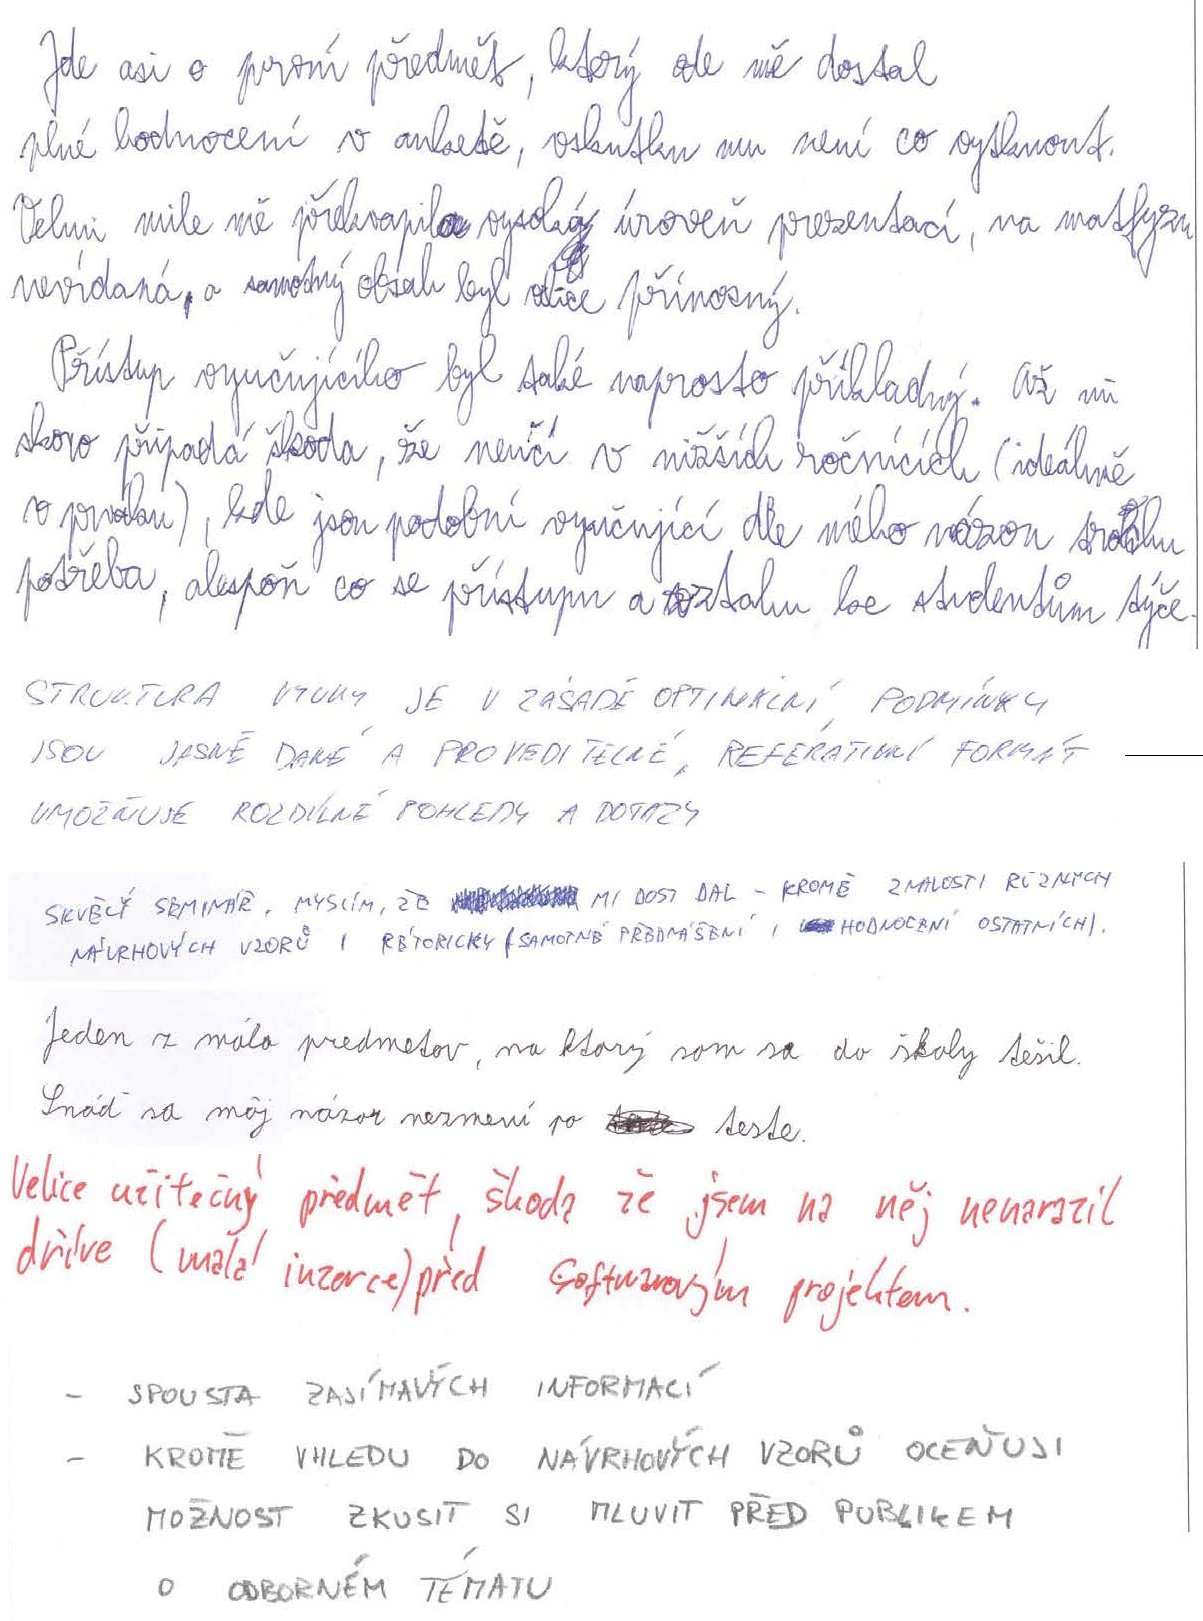 Jde asi o první předmět, který ode mě dostal
plné hodnocení v anketě, vskutku mu není co vytknout.
Velmi mile mě překvapila vysoká úroveň prezentací, na matfyzu
nevídaná, a samotný obsah byl velice přínosný.
Přístup vyučujícího byl také naprosto příkladný. Až mi
skoro připadá škoda, že neučí v nižších ročnících (ideálně
v prváku), kde jsou podobní vyučující dle mého názoru trochu
potřeba, alespoň co se přístupu a vztahu ke studentům týče.
STRUKTURA VÝUKY JE V ZÁSADĚ OPTIMÁLNÍ, PODMÍNKY
JSOU JASNĚ DANÉ A PROVEDITELNÉ, REFERÁTIVNÍ FORMÁT
UMOŽŇUJE ROZDÍLNÉ POHLEDY A DOTAZY
SKVĚLÝ SEMINÁŘ, MYSLÍM, ŽE MI DOST DAL – KROMĚ ZNALOSTI RŮZNÝCH
NÁVRHOVÝCH VZORŮ I RÉTORICKY (SAMOTNÉ PŘEDNÁŠENÍ I HODNOCENÍ OSTATNÍCH).
Jeden z mála predmetov, na ktorý som sa do školy tešil.
Snáď sa môj názor nezmení po teste.
Velice užitečný předmět, škoda že jsem na něj nenarazil
dříve (malá inzerce) před Softwarovým projektem.
- SPOUSTA ZAJÍMAVÝCH INFORMACÍ
- KROMĚ VHLEDU DO NÁVRHOVÝCH VZORŮ OCEŇUJI
MOŽNOST ZKUSIT SI MLUVIT PŘED PUBLIKEM
O ODBORNÉM TÉMATU